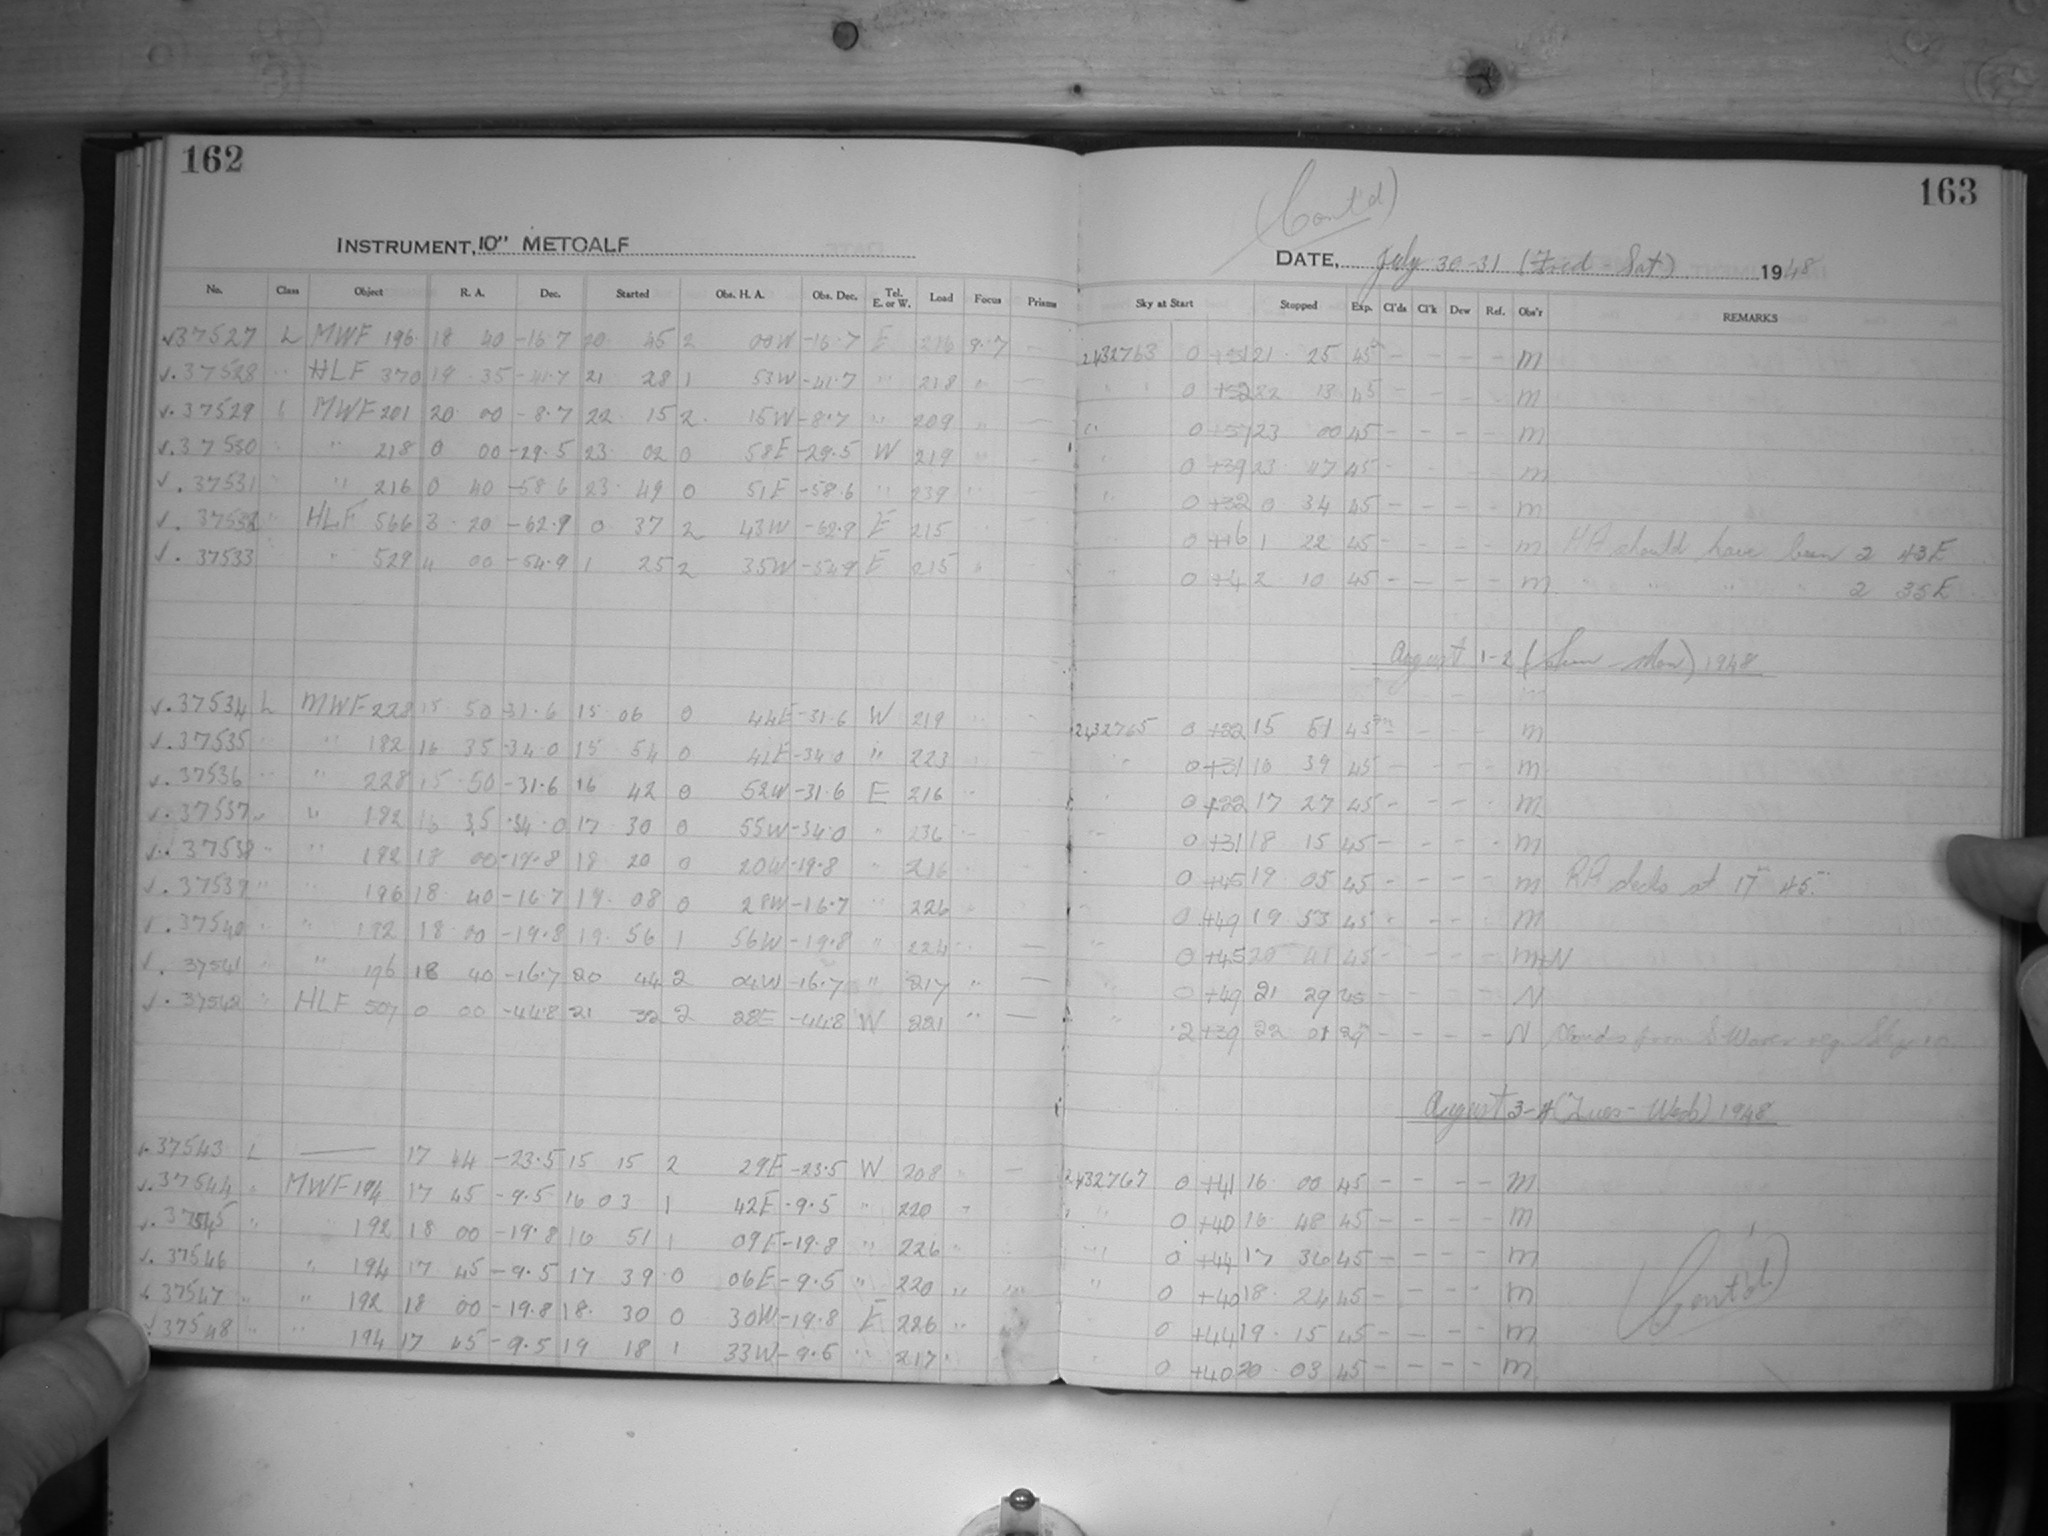 162
INSTRUMENT, 10" METCALF
No. Class Object R. A. Dec. Started Obs. H. A. Obs. Dec. Tel. E. or W. Load Focus Prisms
√37527 L MWF 196 18 40 -16.7 20 45 2 00W -16.7 E 216 9.7 —
√.37528 " HLF 370 19 35 -41.7 21 28 1 53W -41.7 " 218 " —
√.37529 L MWF 201 20 00 -8.7 22 15 2 15W -8.7 " 209 " —
√.37530 " " 218 0 00 -29.5 23 02 0 58E -29.5 W 219 "
√.37531 " " 216 0 40 -58.6 23 49 0 51E -58.6 " 239 "
√.37532 " HLF 566 3 20 -62.9 0 37 2 43W -62.9 E 215
√.37533 " 529 4 00 -54.9 1 25 2 35W -54.9 E 215 "
√.37534 L MWF 228 15 50 -31.6 15 06 0 44E -31.6 W 219
√.37535 " 182 16 35 -34.0 15 54 0 41E -34.0 " 223
√.37536 " " 228 15 50 -31.6 16 42 0 52W -31.6 E 216
√.37537 " " 182 16 35 -34.0 17 30 0 55W -34.0 " 236
√.37538 " " 192 18 00 -19.8 18 20 0 20W -19.8 " 216
√.37539 " " 196 18 40 -16.7 19 08 0 28W -16.7 " 226
√.37540 " " 192 18 00 -19.8 19 56 1 56W -19.8 " 224
√.37541 " " 196 18 40 -16.7 20 44 2 04W -16.7 " 217 " —
√.37542 " HLF 507 0 00 -44.8 21 32 2 28E -44.8 W 221 " —
√.37543 L — 17 44 -23.5 15 15 2 29E -23.5 W 208 " —
√.37544 " MWF 194 17 45 -9.5 16 03 1 42E -9.5 " 220 "
√.37545 " 192 18 00 -19.8 16 51 1 09E -19.8 " 226 "
√.37546 " 194 17 45 -9.5 17 39 0 06E -9.5 " 220 "
√.37547 " " 192 18 00 -19.8 18 30 0 30W -19.8 E 226 "
√.37548 " " 194 17 45 -9.5 19 18 1 33W -9.5 " 217 "
163
(Cont'd)
DATE, July 30-31 (Frid - Sat) 1948
Sky at Start Stopped Exp. Cl'ds Cl'k Dew Ref. Obs'r REMARKS
2432763 0 +51 21 25 45m - - - - M
" 0 +52 22 13 45 - - - - M
" 0 +57 23 00 45 - - - - M
" 0 +39 23 47 45 - - - - M
" 0 +32 0 34 45 - - - - M
" 0 +16 1 22 45 - - - - M HA should have been 2 43E
0 +4 2 10 45 - - - - M " " " " 2 35E
August 1-2 (Sun - Mon) 1948
2432765 0 +22 15 51 45m - - - - M
" 0 +31 16 39 45 - - - - M
" 0 +22 17 27 45 - - - - M
" 0 +31 18 15 45 - - - - M
0 +45 19 05 45 - - - - M RA sticks at 17h 45m
" 0 +49 19 53 45 - - - - M
" 0 +45 20 41 45 - - - - M+N
" 0 +49 21 29 45 - - - - N
" 2 +39 22 01 29 - - - - N Clouds from S
August 3-4 (Tues - Wed) 1948
2432767 0 +41 16 00 45 - - - - M
" 0 +40 16 48 45 - - - - M
" 0 +44 17 36 45 - - - - M
" 0 +40 18 24 45 - - - - M
0 +44 19 15 45 - - - - M
" 0 +40 20 03 45 - - - - M
(Cont'd)